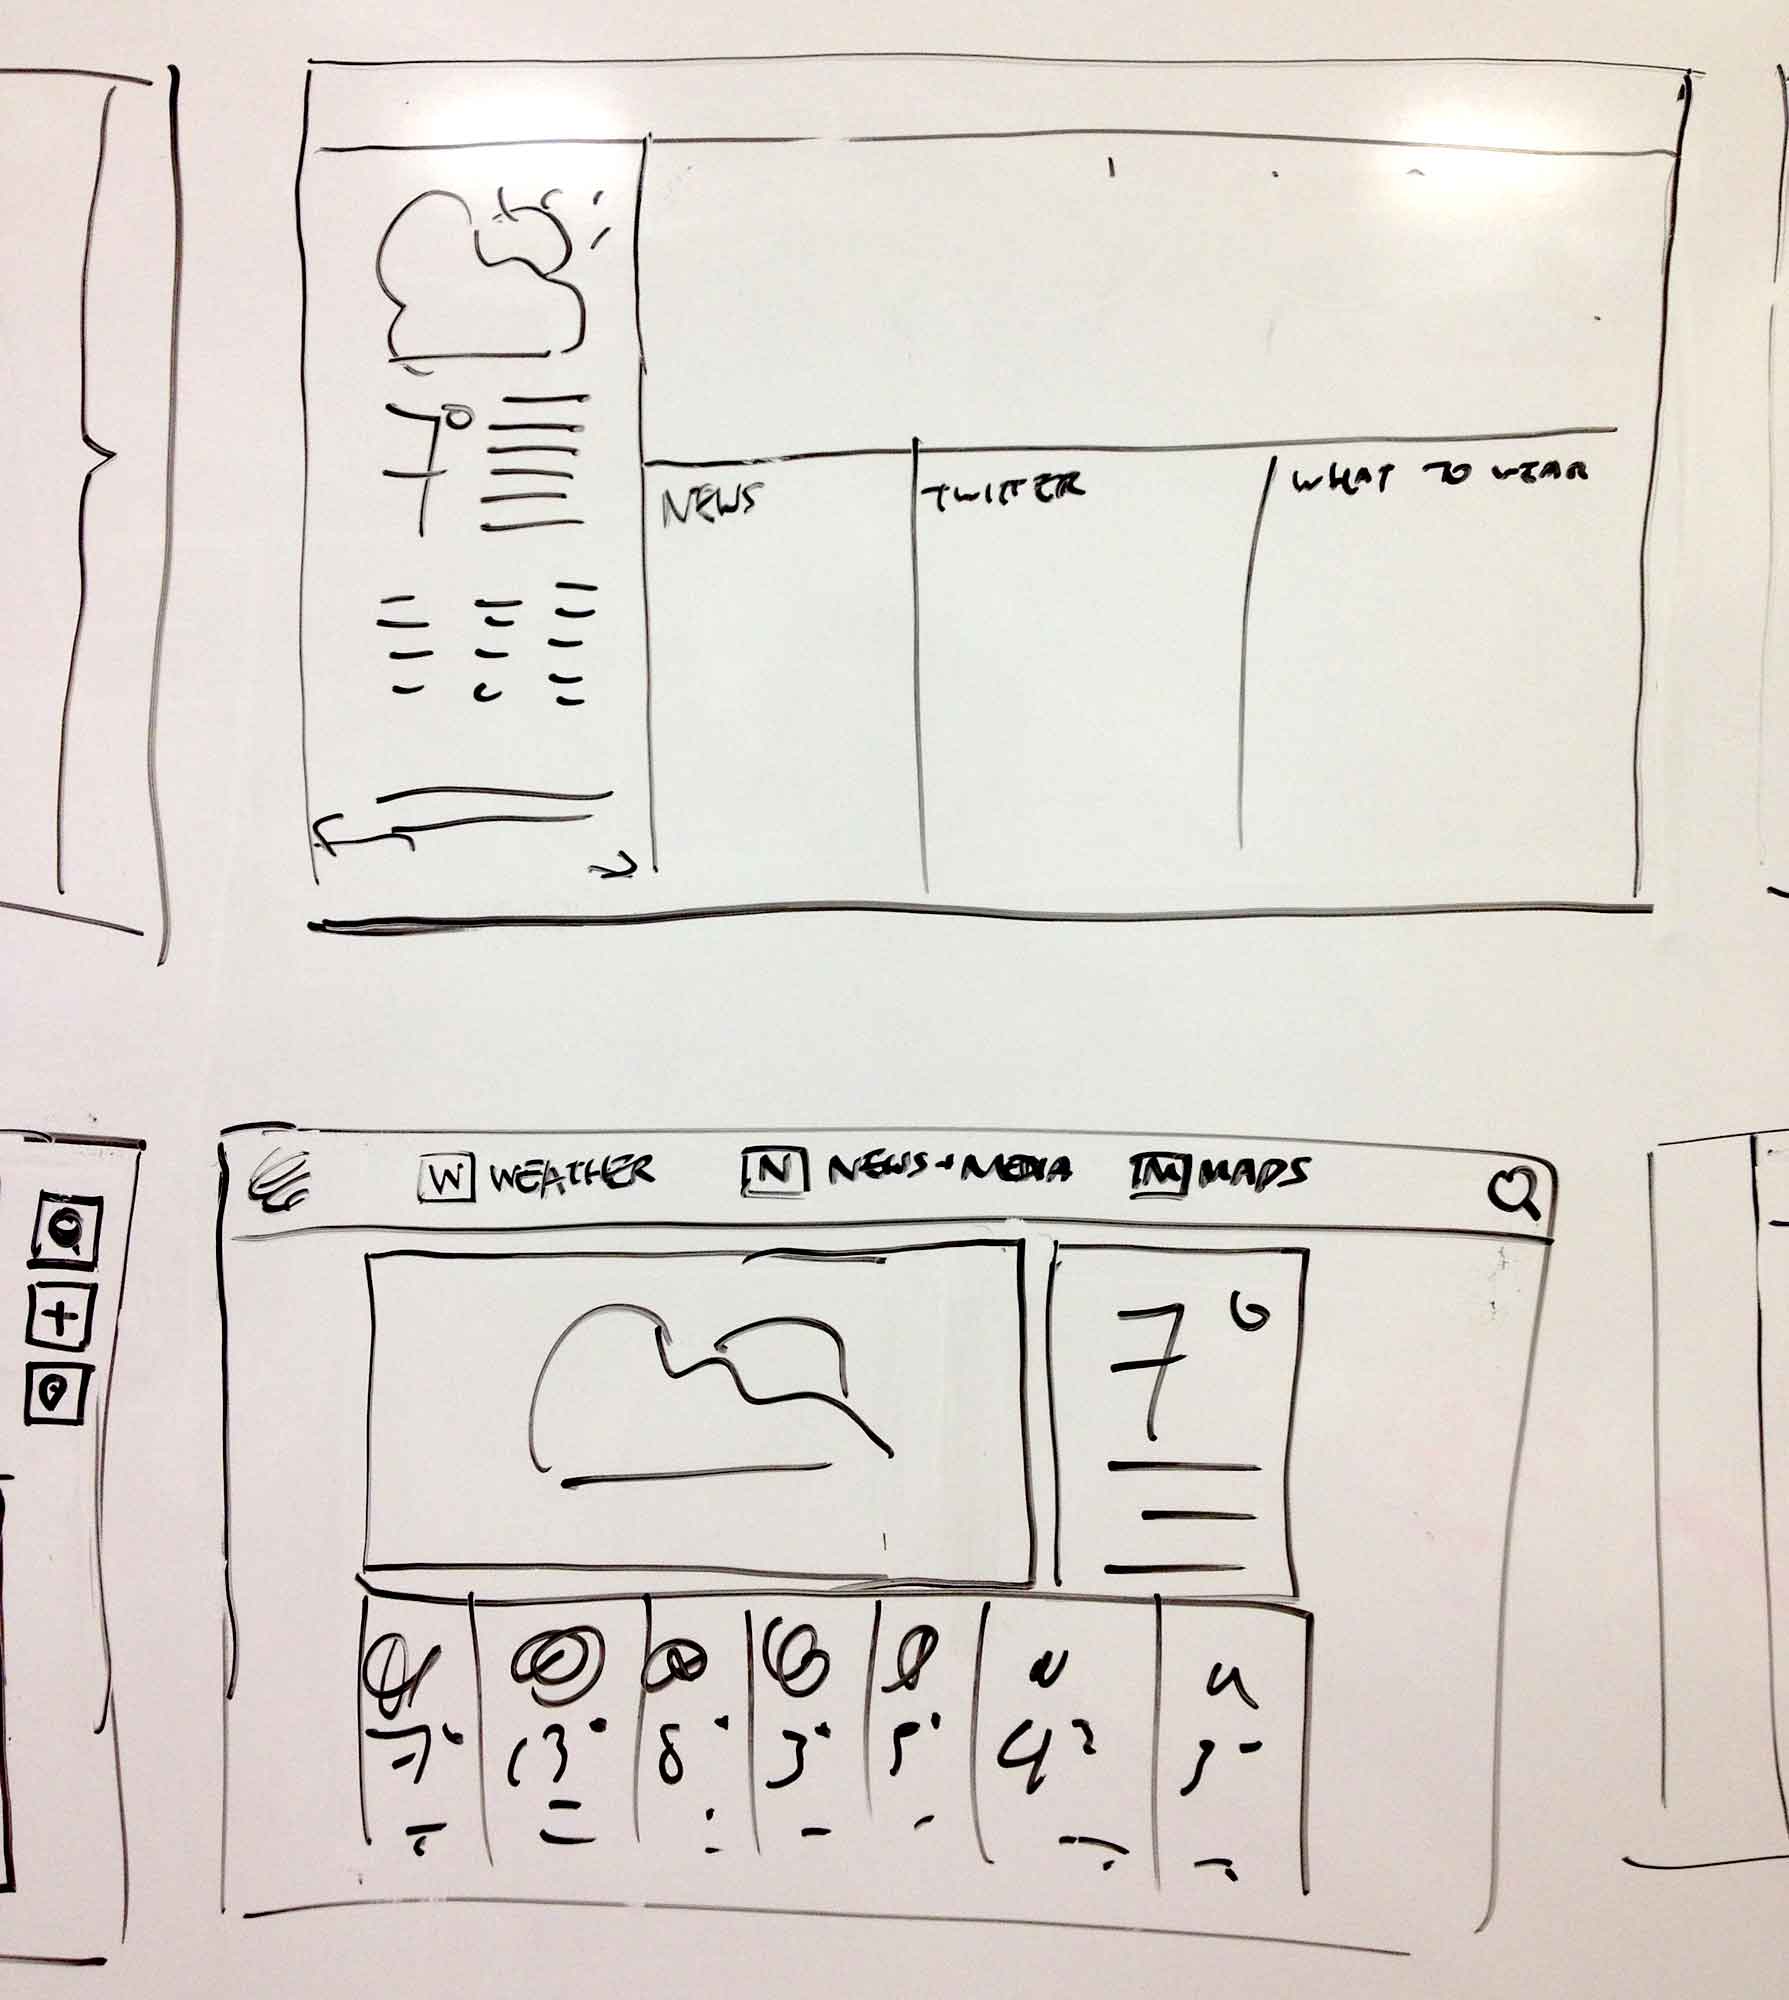 7°
NEWS
TWITTER
WHAT TO WEAR
W WEATHER N NEWS + MEDIA M MAPS
7°
7° 13° 8° 3° 5° 4° 3°